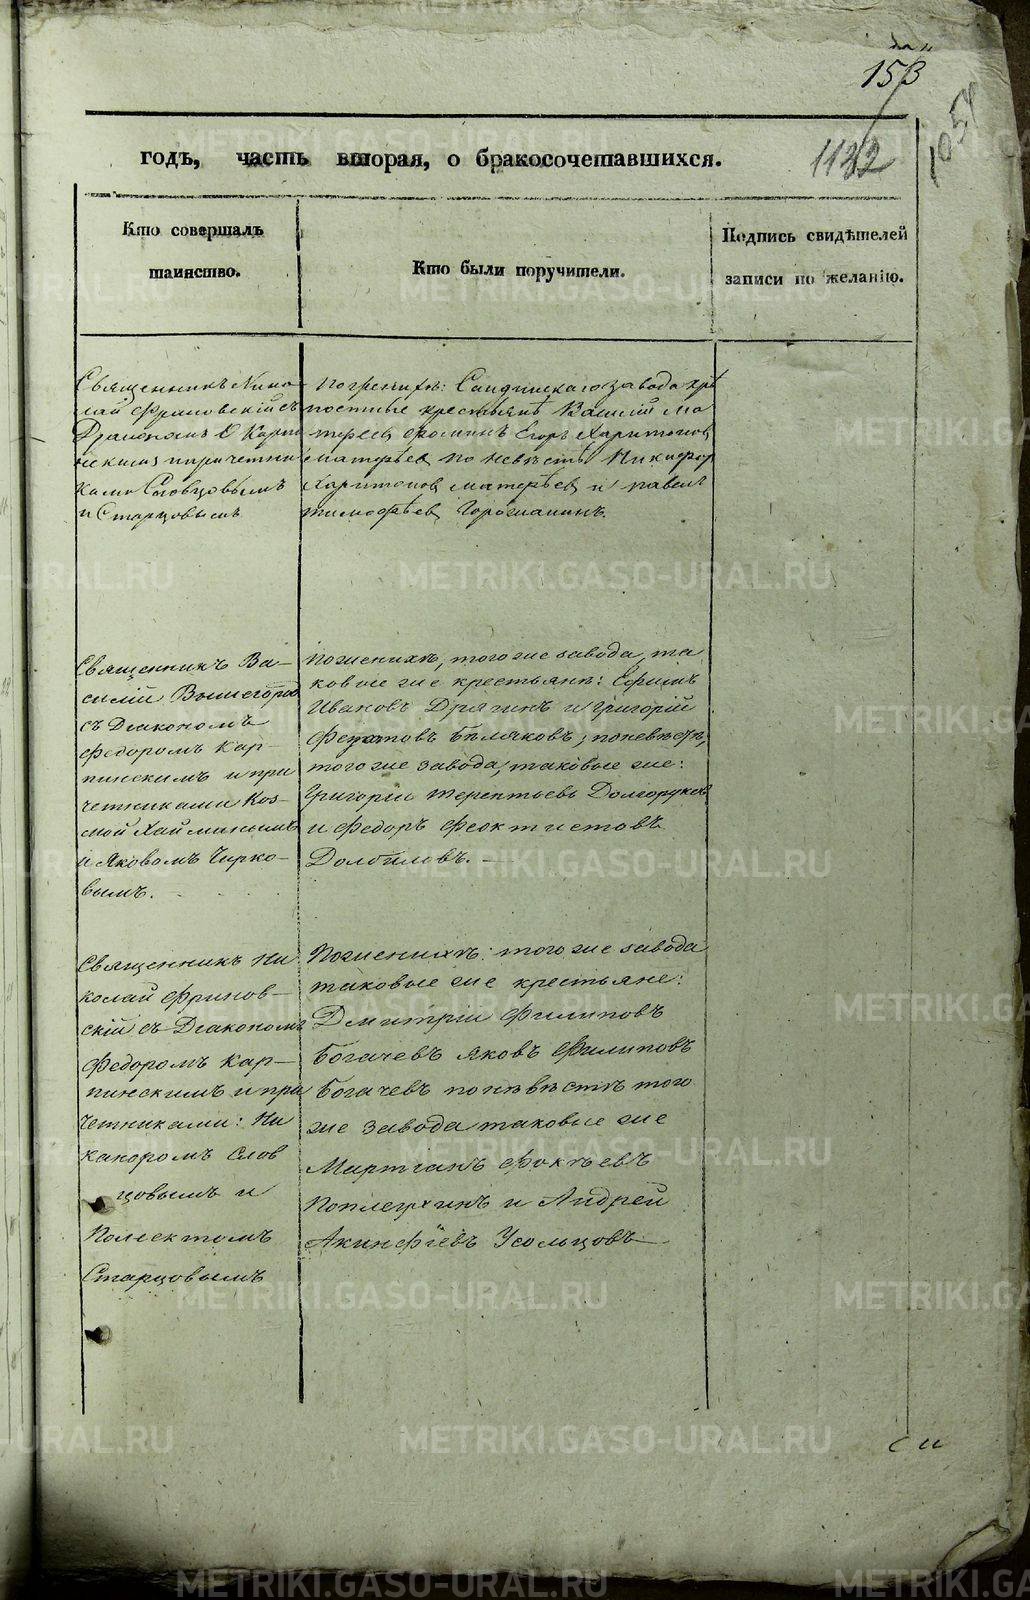 153
1132
1054
годъ, часть вторая, о бракосочетавшихся.
Кто совершалъ
таинство.
Кто были поручители.
Подпись свидѣтелей
записи по желанію.
Священникъ Нико-
лай Фриновскій съ
Дракономъ Ѳ Карпи
нскимъ и причетни
ками Словцовымъ
и Старцовымъ
По женихѣ: завода крѣ
постные крестьянѣ Василій Ма
Егоръ Харитоновъ
по невѣстѣ Никифор
Харитоновъ и Павелъ
Тимофѣевъ
Священникъ Ва-
силій Вышегород
съ Діакономъ
Федоромъ Кар-
пинскимъ и при
четниками Коз-
мой
и Яковомъ Чирко-
вымъ.
Поженихѣ, того же завода, та
ковые же крестьянѣ: Ефимъ
Ивановъ Дрягинъ и Григорій
Бѣляковъ; поневѣстѣ,
того же завода, таковые же:
Григорій Терентьевъ Долгоруковъ
и Федоръ Феоктистовъ
Долбиловъ. —
Священникъ Ни
колай Фринов-
скій съ Діакономъ
Федоромъ Кар-
пинскимъ и при
четниками: Ни
каноромъ Слов
цовымъ и
Полиектомъ
Старцовымъ
Поженихѣ: того же завода
таковые же крестьяне:
Дмитрій Филиповъ
Богачевъ Яковъ Филиповъ
Богачевъ понѣвѣстѣ того
же завода таковые же
Мартианъ Фокѣевъ
и Андрей
Акинфіевъ Усольцовъ
METRIKI.GASO-URAL.RU